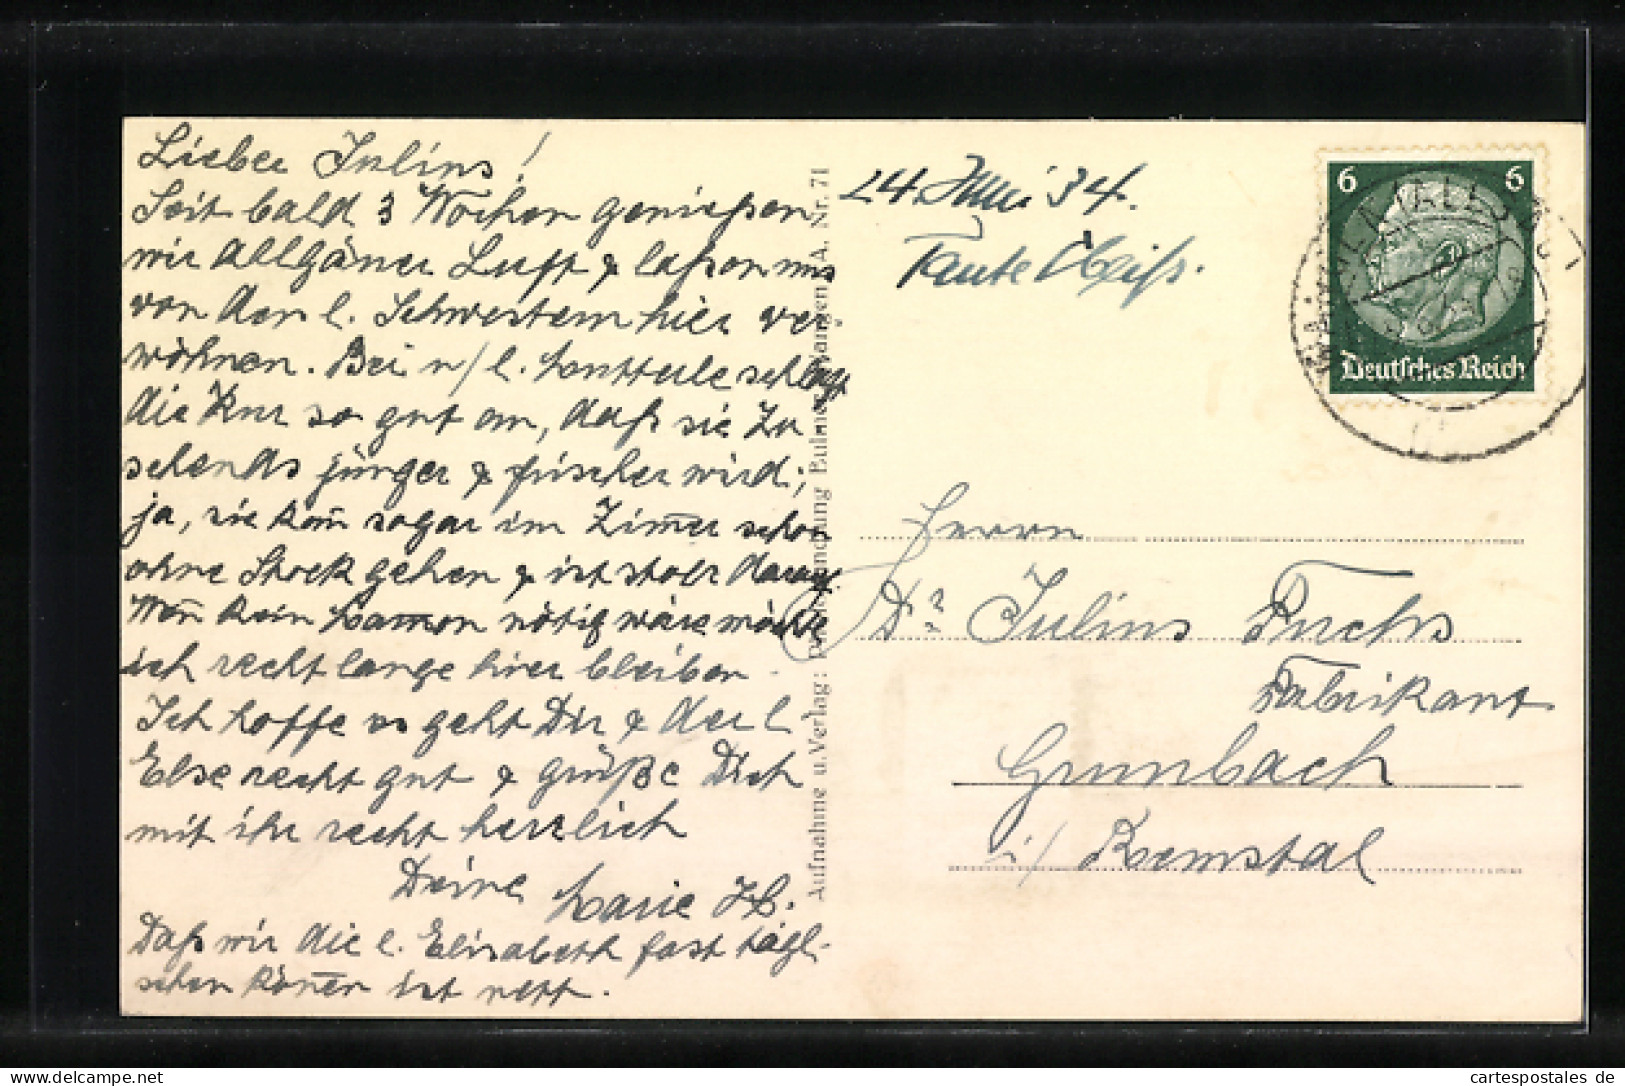 Lieber Julius!
Seit bald 3 Wochen genießen
wir Allgäuer Luft & laßen uns
von den l. Schwestern hier ver
wöhnen. Bei u/ l. Mutterle schlägt
die Kur so gut an, daß sie Zu
sehends jünger & frischer wird;
ja, sie kañ sogar im Zim̄er schon
ohne Stock gehen & ist stolz darauf.
Weñ kein Mam̄on nötig wäre möchte
ich recht lange hier bleiben.
Ich hoffe es geht Dir & der l
Else recht gut & grüße Dich
mit ihr recht herzlich
Deine Marie H.
Daß wir die l. Elisabeth fast tägl.
sehen köñen ist nett.
Aufnahme u. Verlag: Wangen i. A. Nr. 71
24. Juni 34.
Tante
6 6
Deutsches Reich
Herrn
Dr Julius Fuchs
Fabrikant
Grunbach
i/ Remstal
cartespostales de